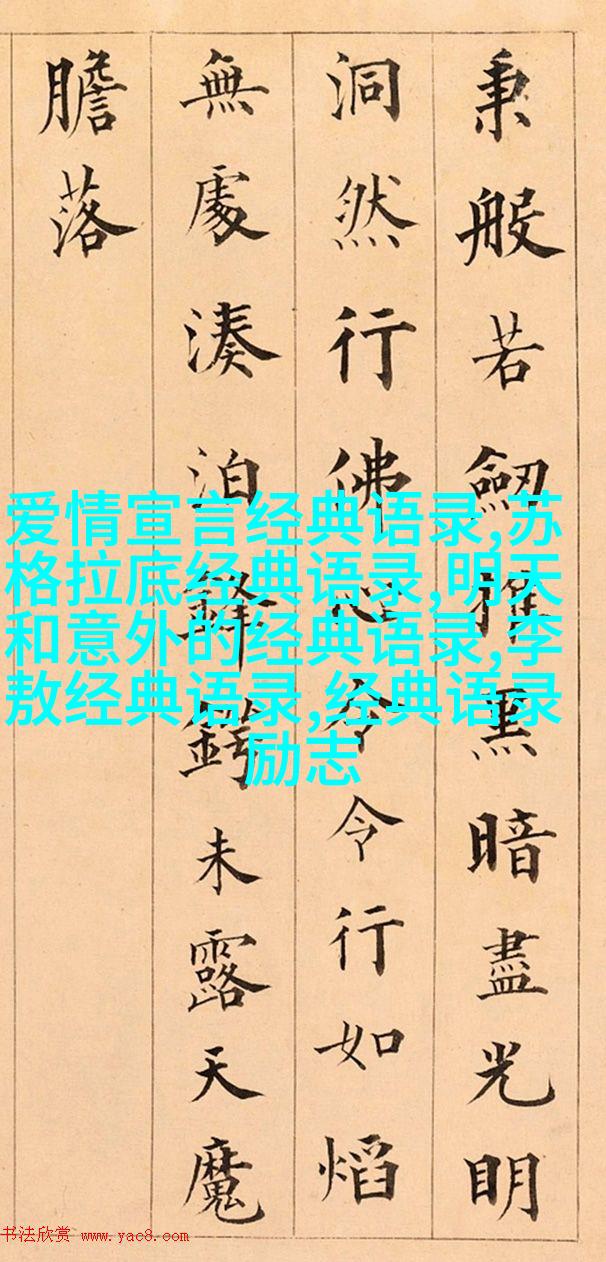 秉般若劔黑暗盡光明
洞然行佛心令令行如熖
無處湊泊鋒鍔未露天魔
膽落
爱情宣言经典语录,苏
格拉底经典语录,明天
和意外的经典语录,李
敖经典语录,经典语录
励志
书法欣赏 www.yac8.com